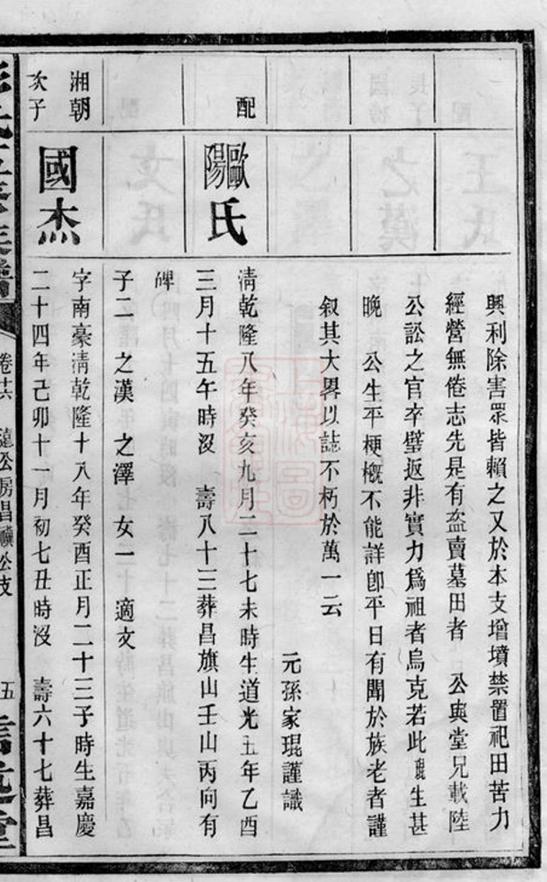 興利除害眾皆賴之又於本支增墳禁置祀田苦力
經營無倦志先是有盜賣墓田者 公與堂兄載陸
公訟之官卒璧返非實力為祖者烏克若此琨生甚
晚 公生平梗槪不能詳卽平日有聞於族老者謹
叙其大畧以誌不朽於萬一云
元孫家琨謹識
配
歐陽氏
淸乾隆八年癸亥九月二十七未時生道光五年乙酉
三月十五午時沒 壽八十三葬昌旗山壬山丙向有
碑
子二 之漢 之澤 女一 適文
湘朝
次子
國杰
字南豪淸乾隆十八年癸酉正月二十三子時生嘉慶
二十四年己卯十一月初七丑時沒 壽六十七葬昌
族譜
房昌
公支
五
堂